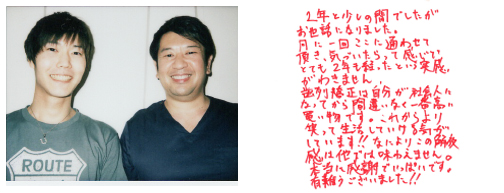 ROUTE
2年と少しの間でしたが
お世話になりました。
月に一回ここに通わせて
頂き、気づいたらって感じで
とても2年も経ったという実感
がわきません。
歯列矯正は自分が社会人に
なってから間違いなく一番高い
買い物です。これからより
笑って生活していける気が
しています!!なによりこの解放
感は他では味わえません。
本当に感謝でいっぱいです。
有難うございました!!